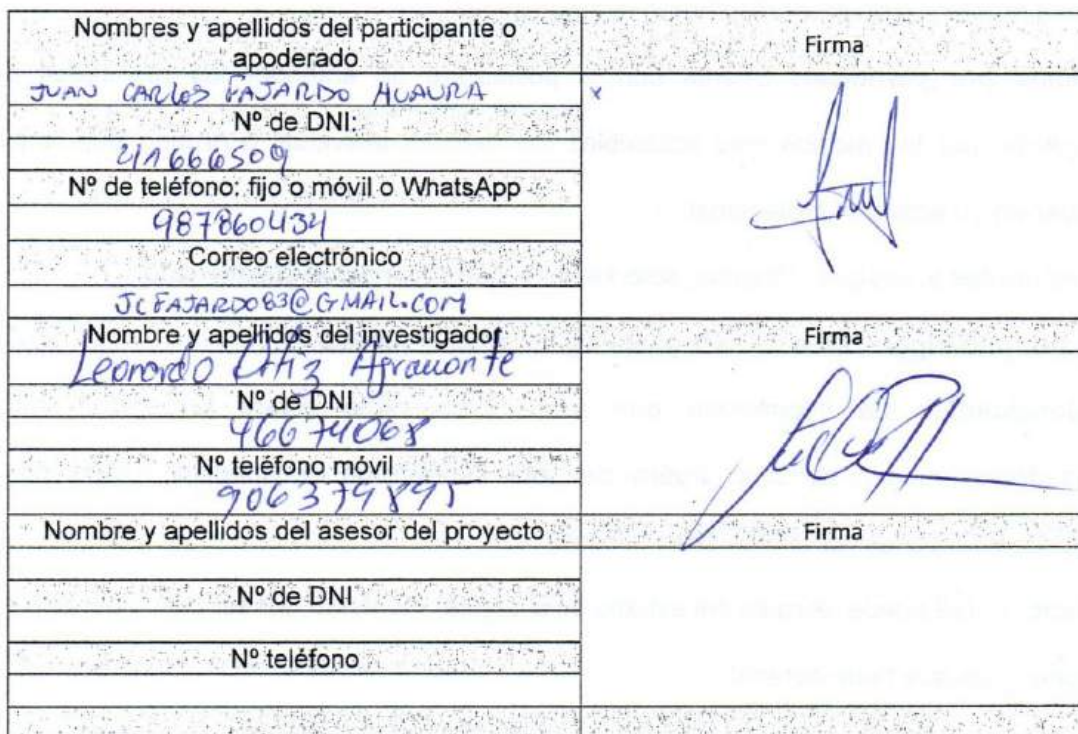 Nombres y apellidos del participante o
apoderado
Firma
JUAN CARLOS FAJARDO HUAURA
x
Nº de DNI:
41666509
Nº de teléfono: fijo o móvil o WhatsApp
987860434
Correo electrónico
JCFAJARDO83@GMAIL.COM
Nombre y apellidos del investigador
Firma
Leonardo Ortiz Agramonte
Nº de DNI
46674068
Nº teléfono móvil
906379895
Nombre y apellidos del asesor del proyecto
Firma
Nº de DNI
Nº teléfono